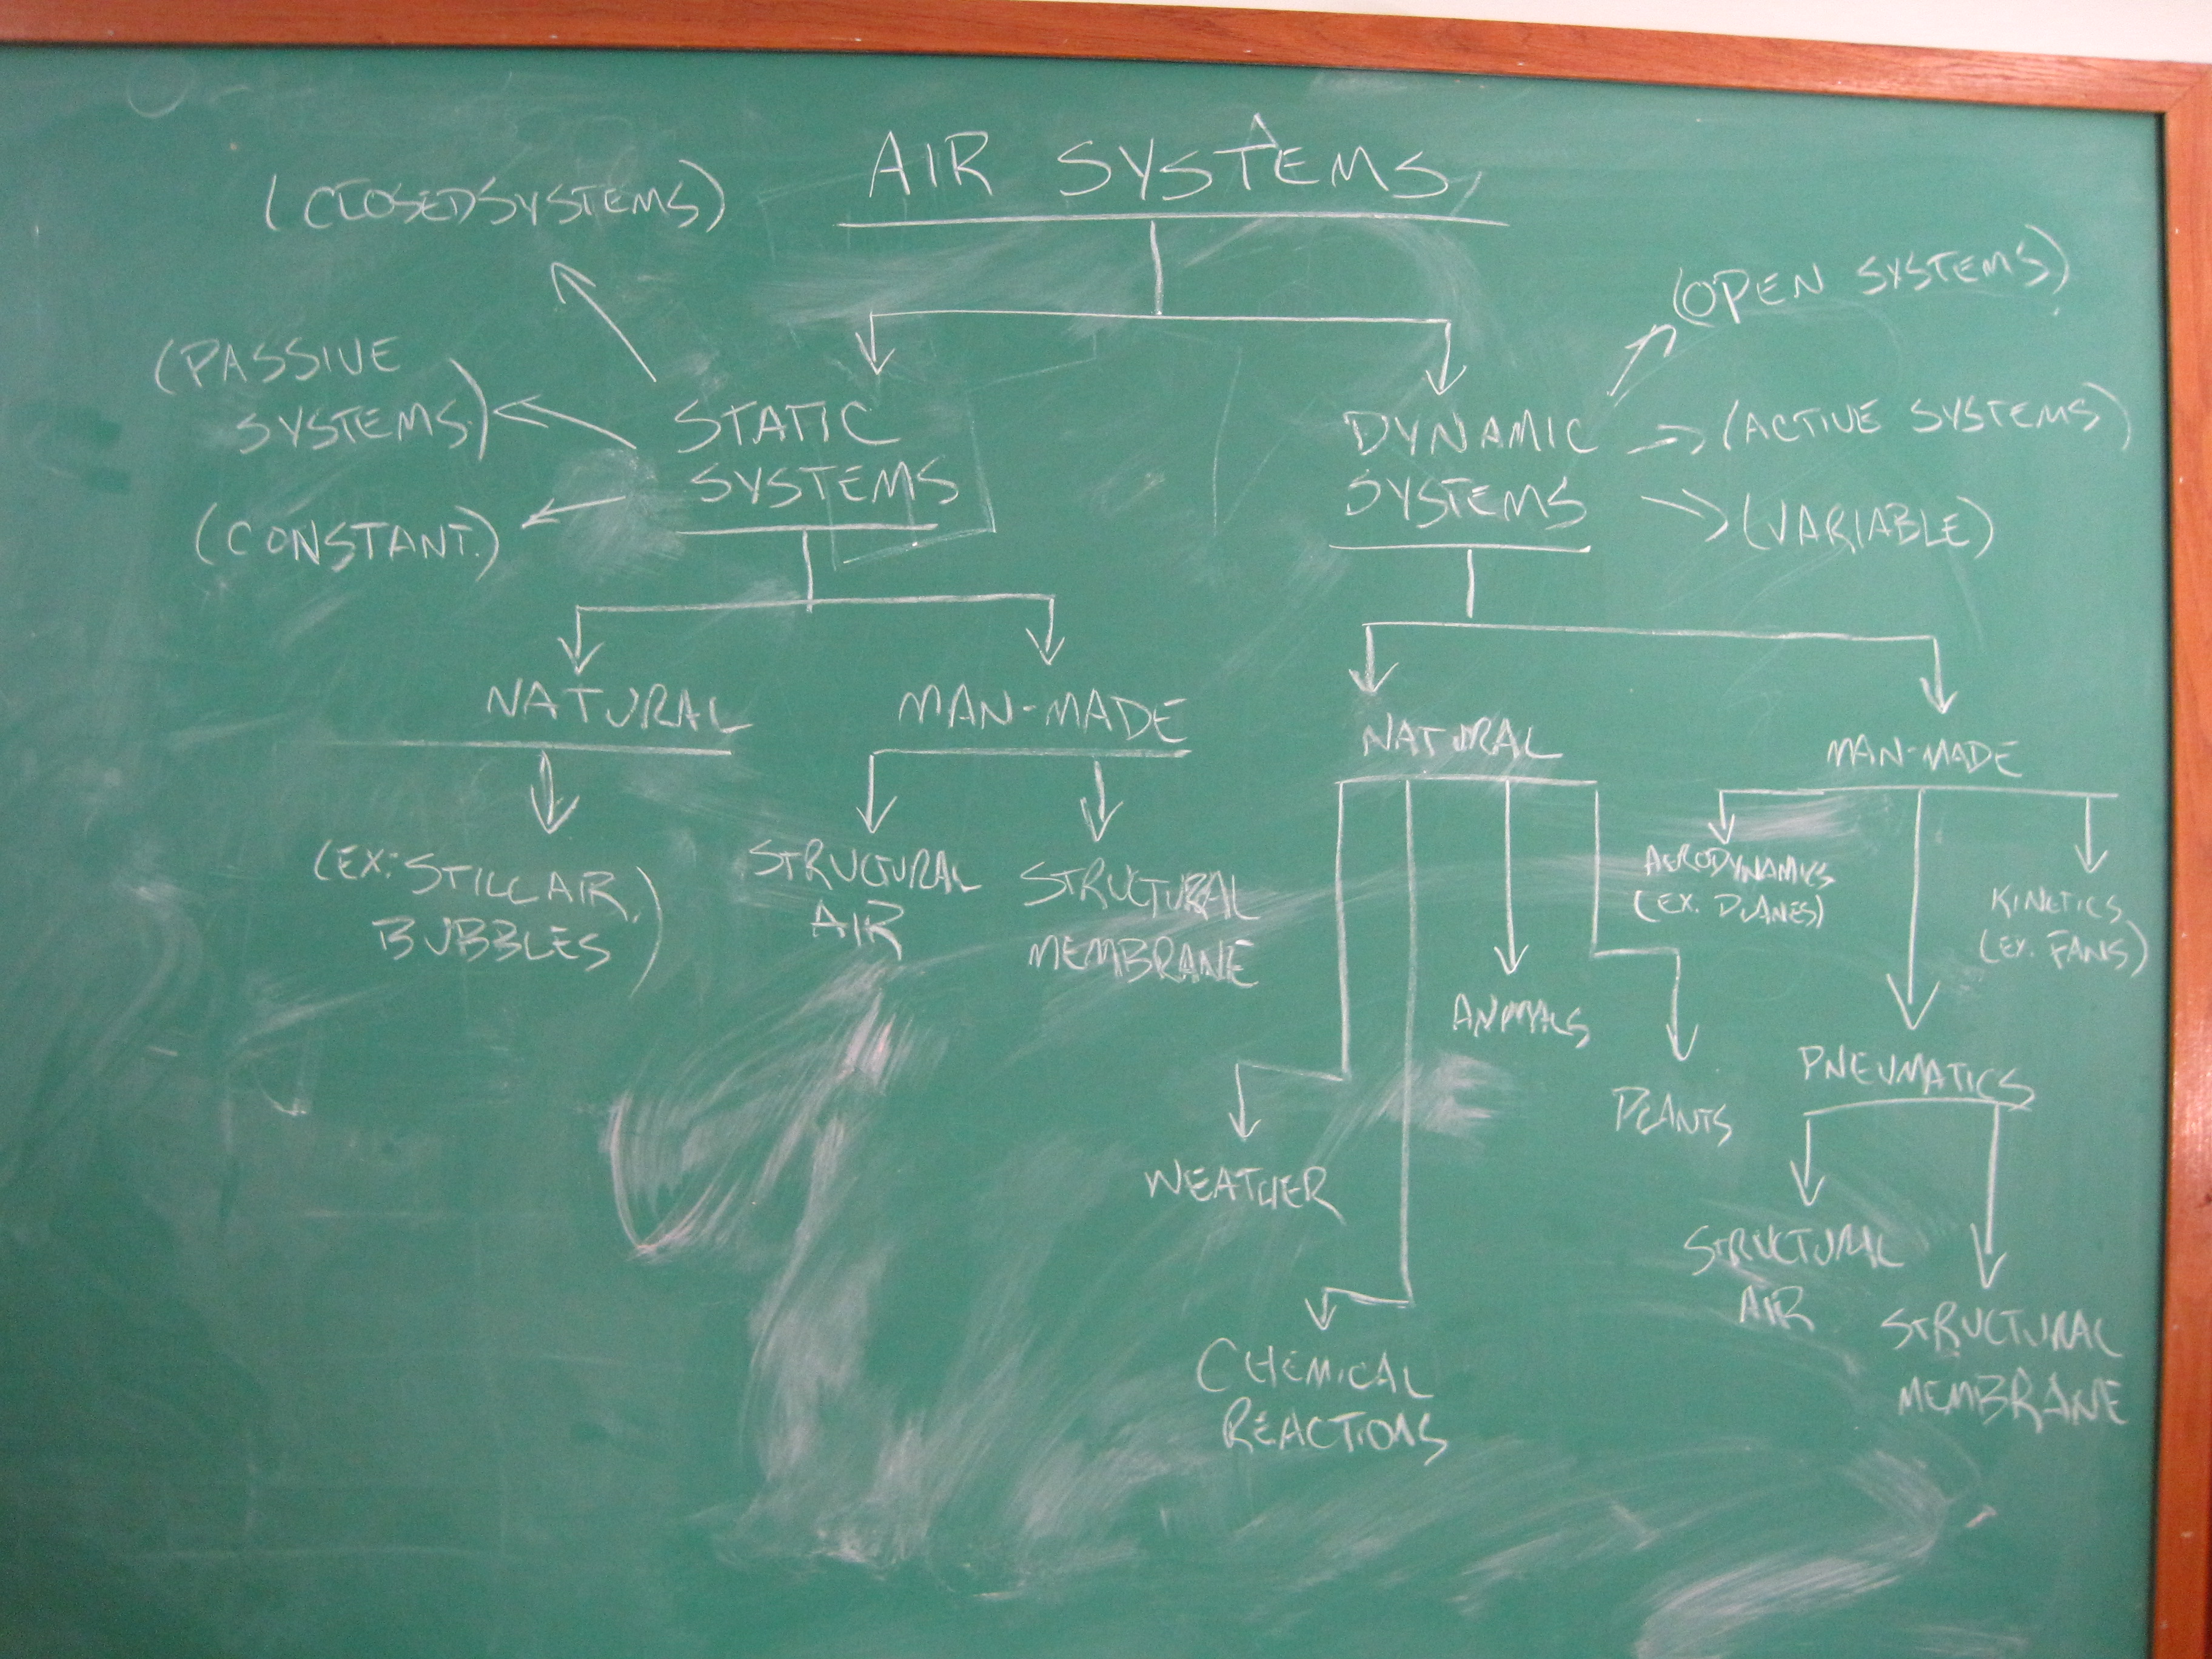 AIR SYSTEMS
(CLOSED SYSTEMS)
(OPEN SYSTEMS)
(PASSIVE
SYSTEMS)
(CONSTANT)
STATIC
SYSTEMS
DYNAMIC
SYSTEMS
(ACTIVE SYSTEMS)
(VARIABLE)
NATURAL
MAN-MADE
NATURAL
MAN-MADE
(EX: STILL AIR,
BUBBLES)
STRUCTURAL
AIR
STRUCTURAL
MEMBRANE
AERODYNAMICS
(EX. PLANES)
KINETICS
(EX. FANS)
ANIMALS
PLANTS
PNEUMATICS
WEATHER
STRUCTURAL
AIR
STRUCTURAL
MEMBRANE
CHEMICAL
REACTIONS